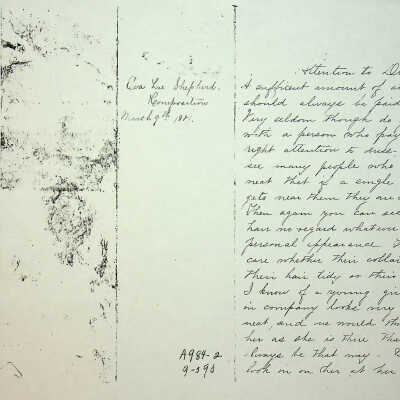 Eva Lue Shepherd.
Composition
March 9th 18
A984-2
9-590
Attention to Dr
A sufficient amount of
should always be paid
Very seldom though do
with a person who pay
right attention to dress.
see many people who
neat that if a single
gets near them they are
Then again you can see
have no regard whatever
personal appearance
care whether their collar
their hair tidy or their
I know of a young gir
in company looks very
neat, and we would th
her as she is there tha
always be that way.
look on on her at her